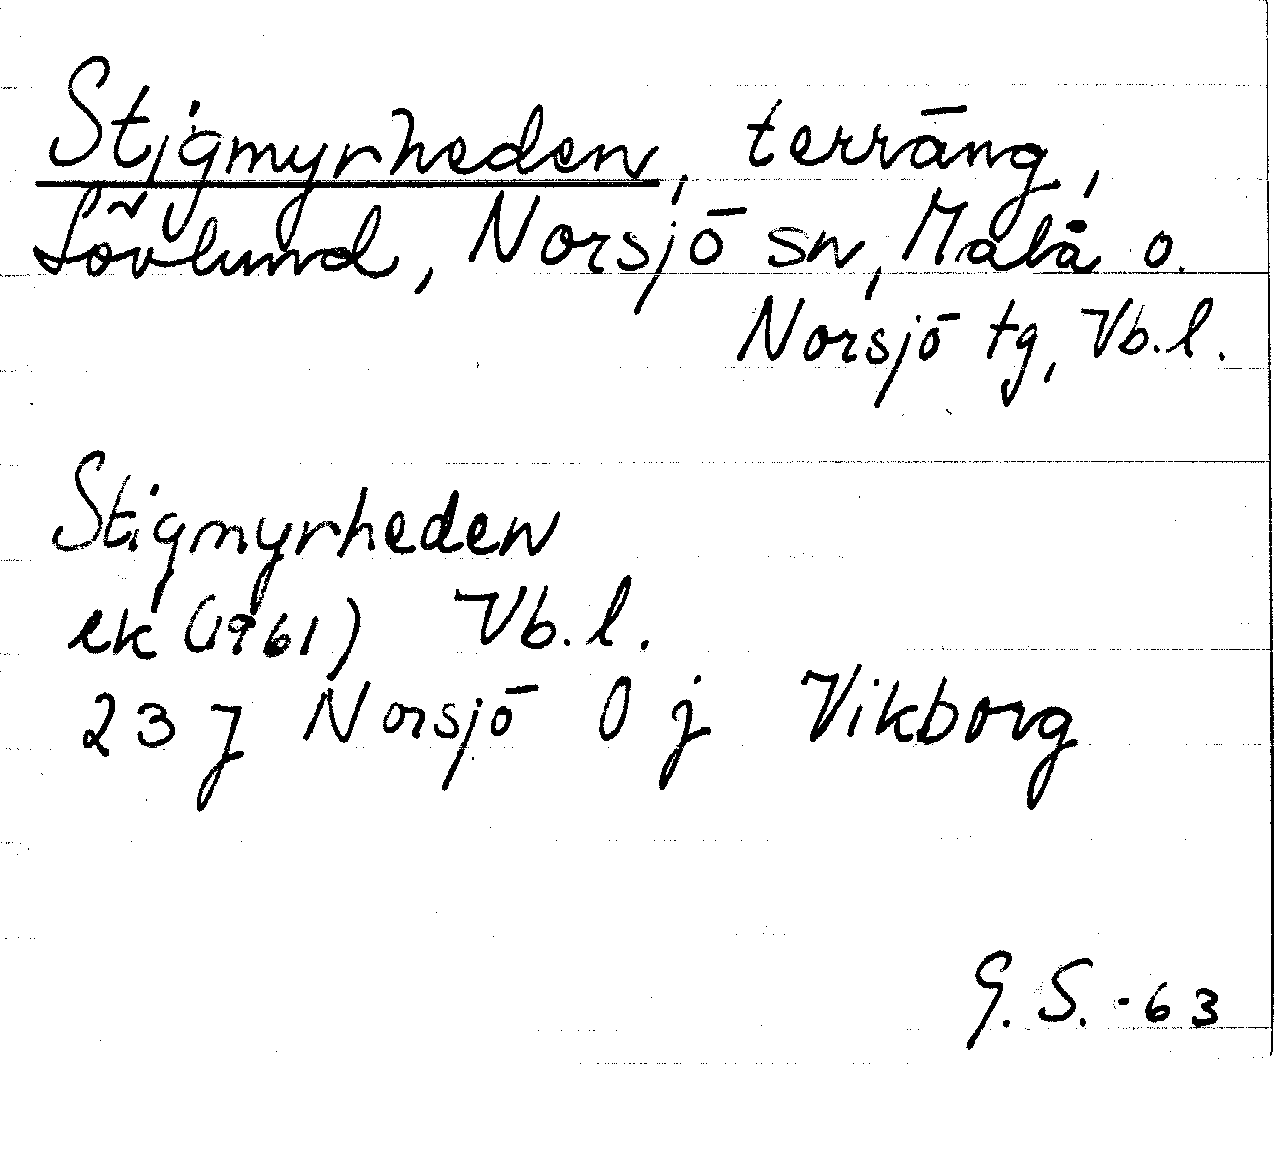 Stigmyrheden, terräng,
Lövlund, Norsjö sn, Malå o.
Norsjö tg, Vb. l.
Stigmyrheden
ek (1961) Vb. l.
23 J Norsjö 0 j Vikborg
G. S. -63